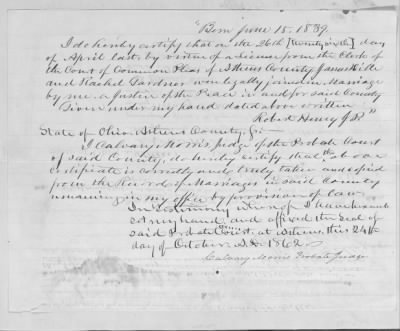 "Bern June 15. 1839.
I do hereby certify that on the 26th [twenty sixth] day
of April last, by virtue of a license from the Clerk of
the Court of Common Pleas of Athens County, James Hill
and Rachel Gardner were legally joined in Marriage
by me a Justice of the Peace in and for said County
Given under my hand dated above written
Robert Henry J.P."
State of Ohio Athens County, ss
I Calvary Morris, Judge of the Probate Court
of said County, do hereby certify that the above
certificate is correctly and truly taken and copied
from the Record of Marriages in said County
remaining in my office by provision of law.
In testimony whereof I have hereunto
set my hand, and affixed the Seal of
said Probate Court, at Athens, this 24th
day of October A.D. 1862
Calvary Morris Probate Judge